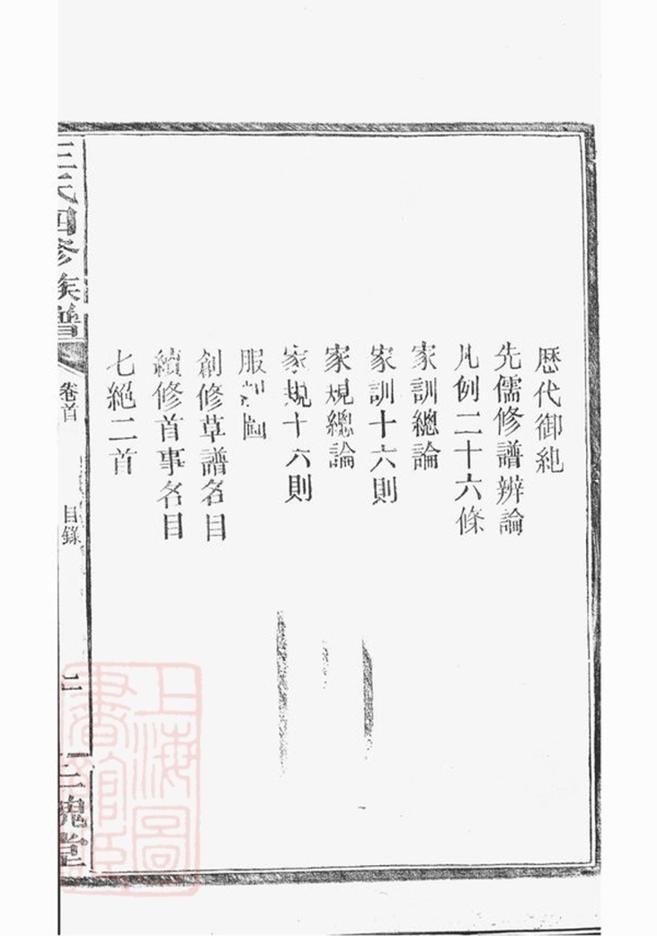 歷代御紀
先儒修譜辨論
凡例二十六條
家訓總論
家訓十六則
家規總論
家規十六則
服制圖
創修草譜名目
續修首事名目
七絕二首
王氏四修族譜
卷首
目錄
二
三槐堂
上海圖書館藏